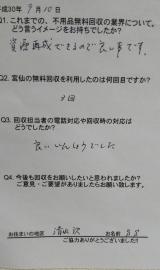 平成30年 9月10日
Q1. これまでの、不用品無料回収の業界について、
どう言うイメージをお持ちでしたか?
資源再成できるので良い事です。
Q2. 宮仙の無料回収を利用したのは何回目ですか?
3回
Q3. 回収担当者の電話対応や回収時の対応は
どうでしたか?
良いかんじでした
Q4. 今後も回収をお願いしたいと思われましたか?
ご意見・ご要望がありましたらお願い致します。
お住まいの地区 清水沢 お名前
ご協力ありがとうございました!!